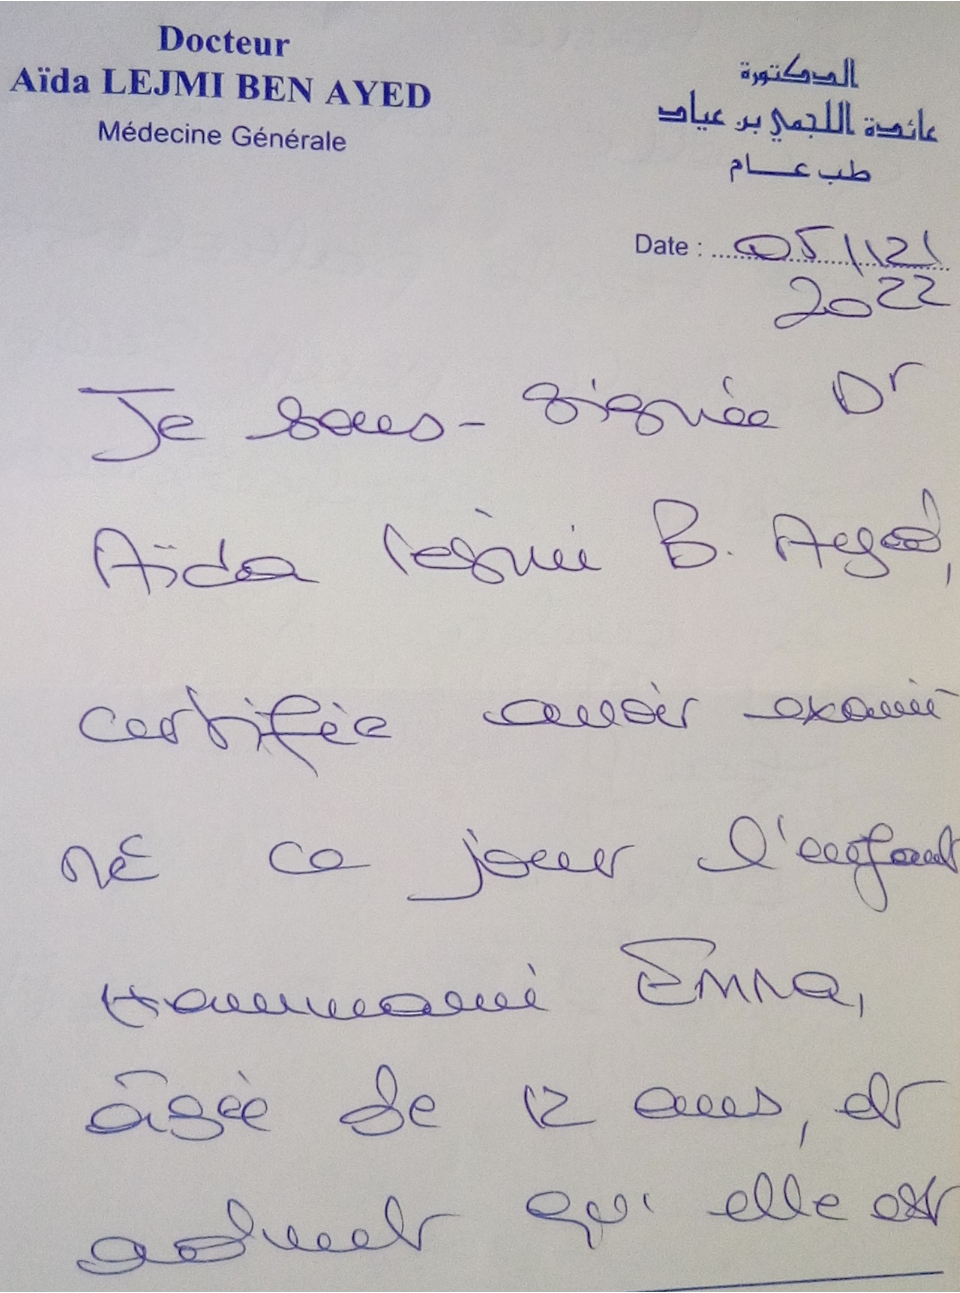 Docteur
Aïda LEJMI BEN AYED
Médecine Générale
الدكتورة
عائدة اللجمي بن عياد
طب عام
Date : 05/12/
2022
Je sous-signée Dr
Aïda Lejmi B. Ayed,
certifie avoir exami
né ce jour l'enfant
Hammami Emna,
âgée de 12 ans, et
qu'elle est